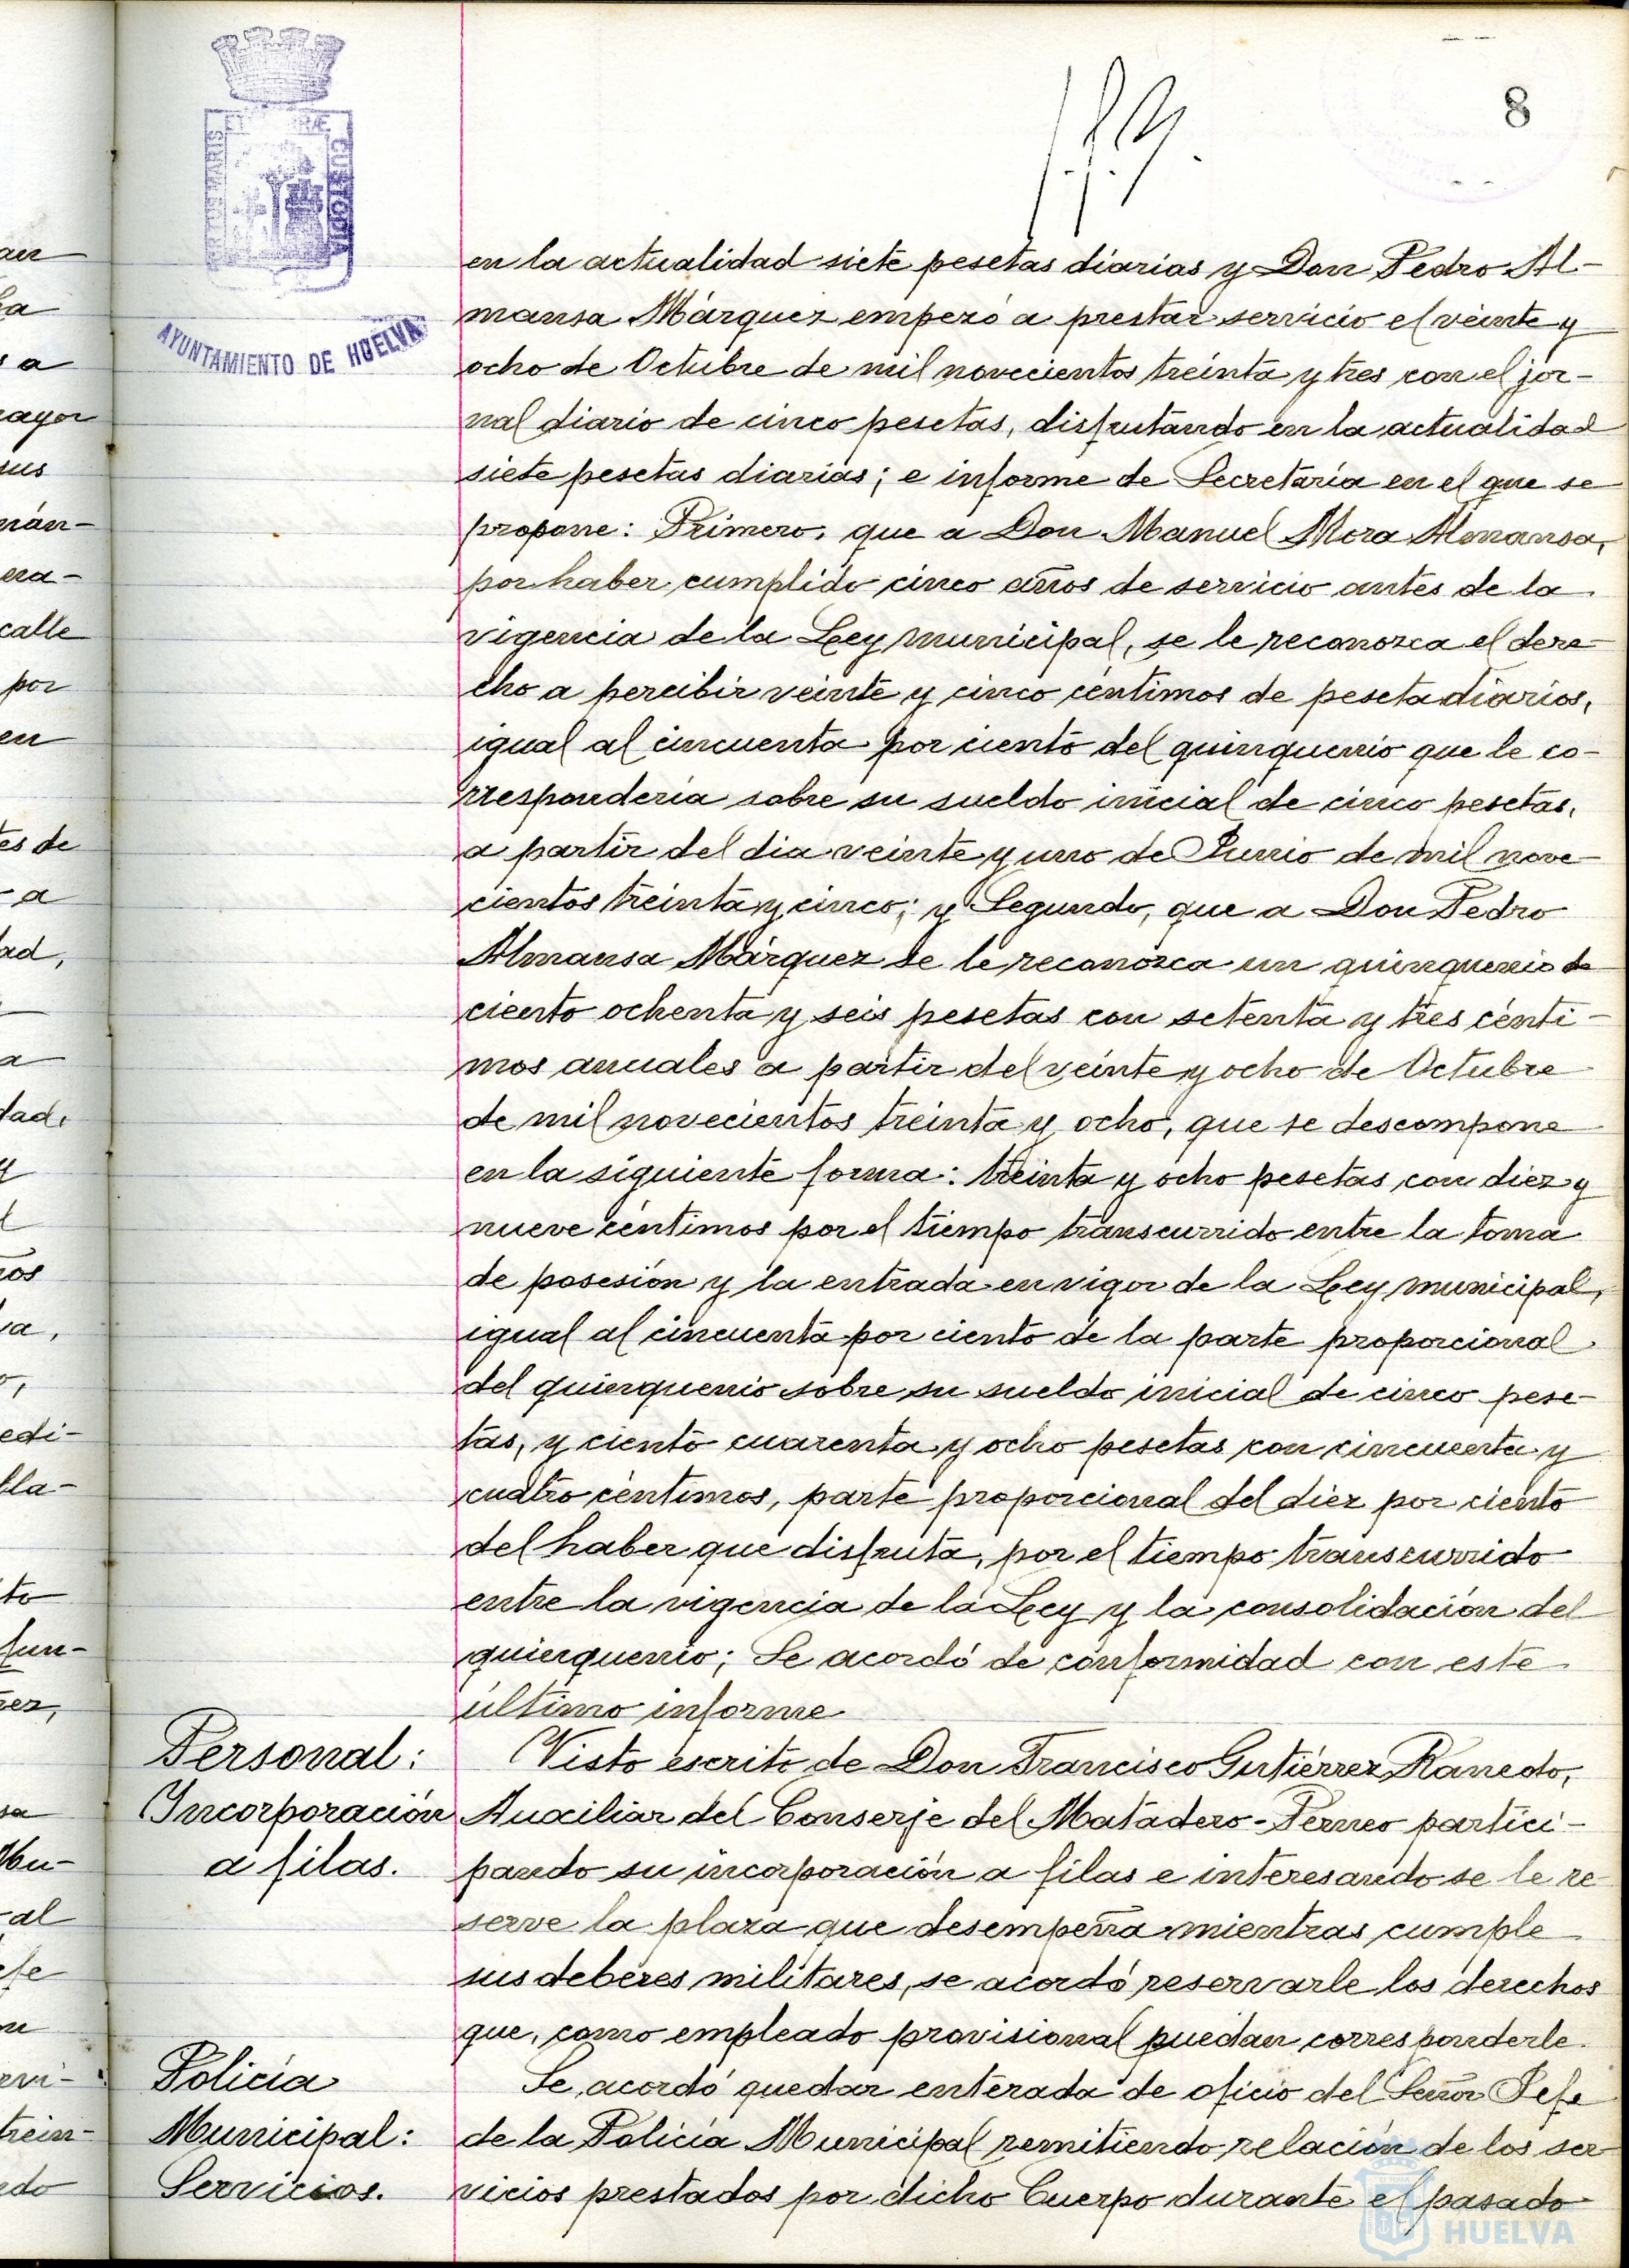 8
PORTUS MARIS ET TERRÆ CUSTODIA
AYUNTAMIENTO DE HUELVA
en la actualidad siete pesetas diarias y Don Pedro Al-
mansa Márquez empezó a prestar servicio el veinte y
ocho de Octubre de mil novecientos treinta y tres con el jor-
nal diario de cinco pesetas, disfrutando en la actualidad
siete pesetas diarias; e informe de Secretaría en el que se
propone: Primero, que a Don Manuel Mora Almansa,
por haber cumplido cinco años de servicio antes de la
vigencia de la Ley municipal, se le reconozca el dere-
cho a percibir veinte y cinco céntimos de peseta diarios,
igual al cincuenta por ciento del quinquenio que le co-
rrespondería sobre su sueldo inicial de cinco pesetas,
a partir del dia veinte y uno de Junio de mil nove-
cientos treinta y cinco; y Segundo, que a Don Pedro
Almansa Márquez se le reconozca un quinquenio de
ciento ochenta y seis pesetas con setenta y tres cénti-
mos anuales a partir del veinte y ocho de Octubre
de mil novecientos treinta y ocho, que se descompone
en la siguiente forma: treinta y ocho pesetas con diez y
nueve céntimos por el tiempo transcurrido entre la toma
de posesión y la entrada en vigor de la Ley municipal,
igual al cincuenta por ciento de la parte proporcional
del quinquenio sobre su sueldo inicial de cinco pese-
tas, y ciento cuarenta y ocho pesetas con cincuenta y
cuatro céntimos, parte proporcional del diez por ciento
del haber que disfruta, por el tiempo transcurrido
entre la vigencia de la Ley y la consolidación del
quinquenio; Se acordó de conformidad con este
último informe
Personal:
Incorporación
a filas.
Visto escrito de Don Francisco Gutiérrez Ranedo,
Auxiliar del Conserje del Matadero-Perneo partici-
pando su incorporación a filas e interesando se le re-
serve la plaza que desempeña mientras cumple
sus deberes militares, se acordó reservarle los derechos
que, como empleado provisional puedan corresponderle.
Policía
Municipal:
Servicios.
Se acordó quedar enterada de oficio del Señor Jefe
de la Policía Municipal remitiendo relación de los ser-
vicios prestados por dicho Cuerpo durante el pasado
HUELVA